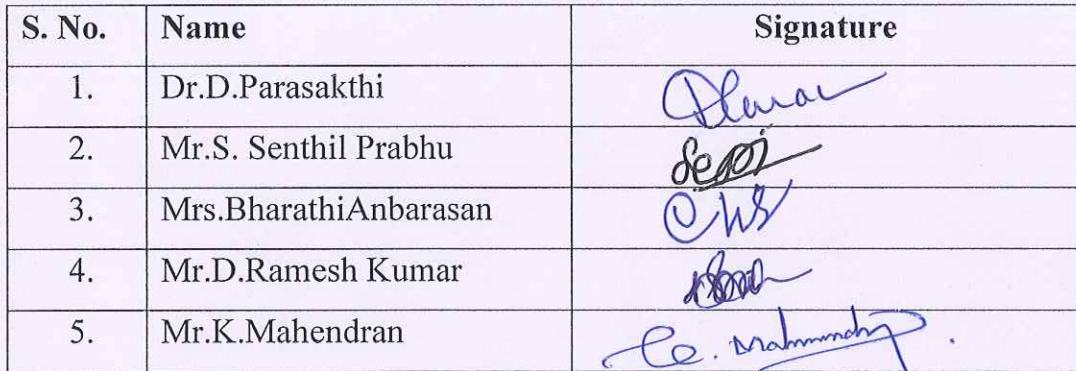 S. No. Name Signature
1. Dr.D.Parasakthi
2. Mr.S. Senthil Prabhu
3. Mrs.BharathiAnbarasan
4. Mr.D.Ramesh Kumar
5. Mr.K.Mahendran